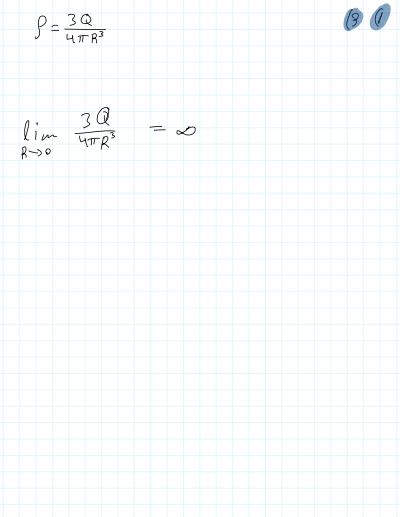 ρ = 3Q / 4πR³
lim R→0 3Q / 4πR³ = ∞